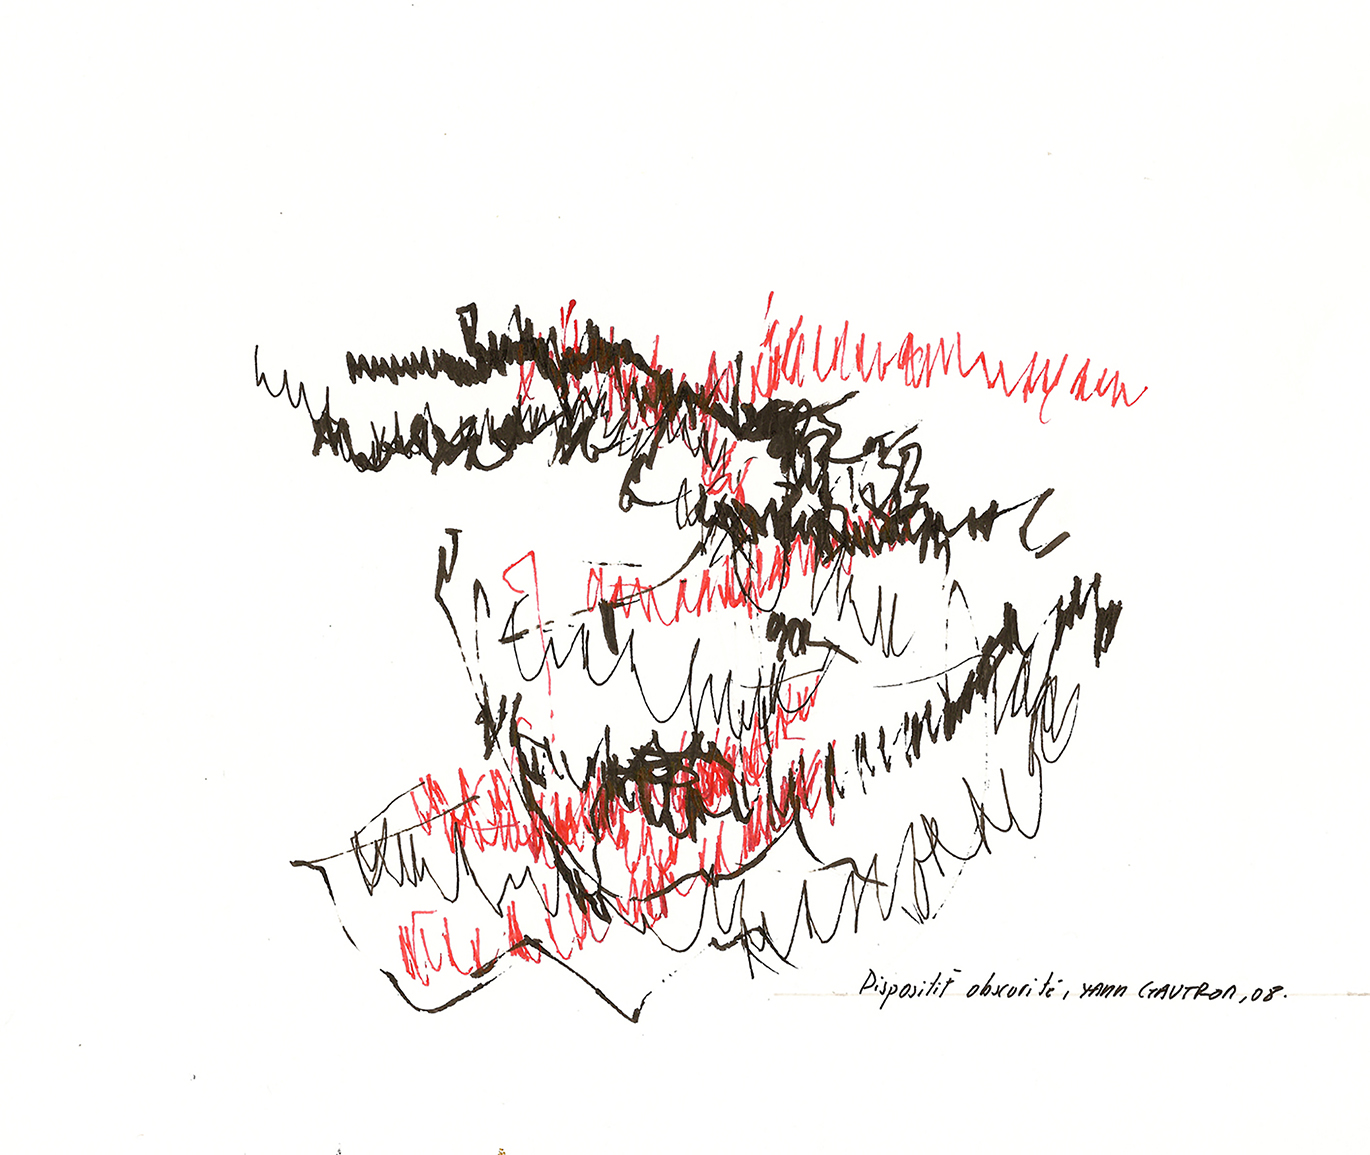 Dispositif obscurité, YANN GAUTRON, 08.